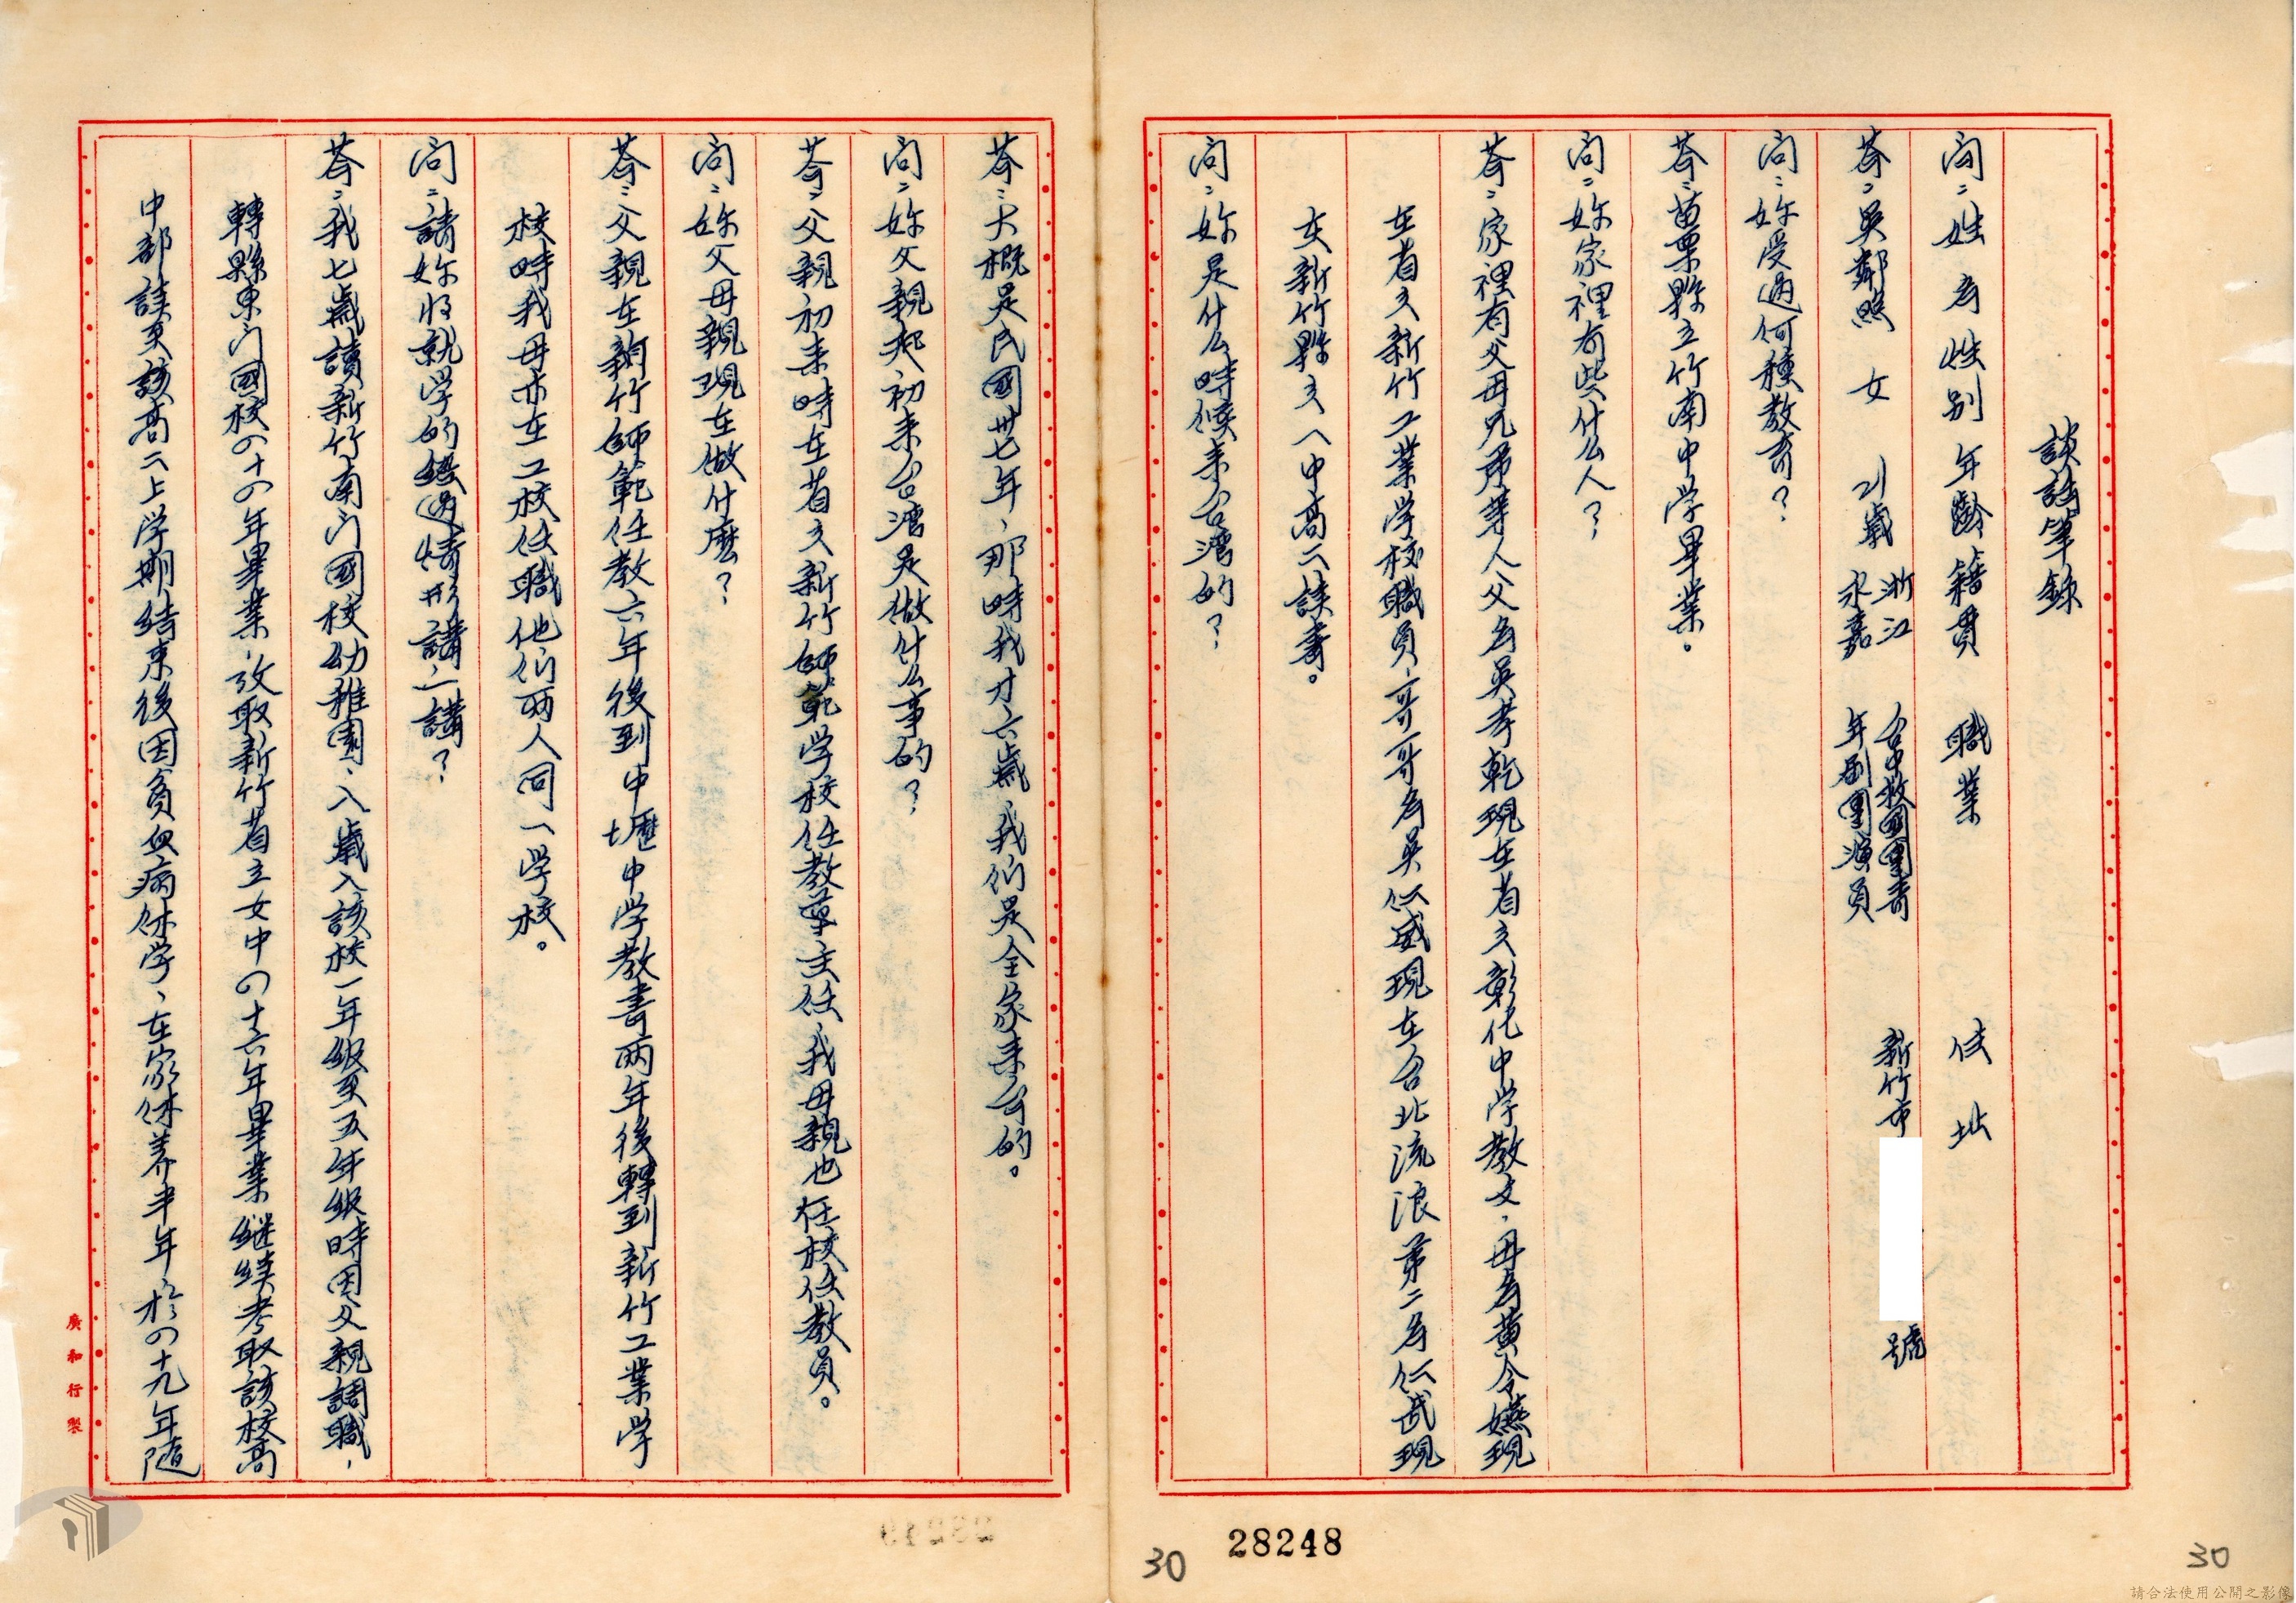 談話筆錄
問：姓名性別年齡籍貫 職業 住址
答：吳鄰照 女 21歲 浙江永嘉 台中救國團青年劇團演員 新竹市 號
問：妳受過何種教育？
答：苗栗縣立竹南中学畢業。
問：妳家裡有些什么人？
答：家裡有父母兄弟等人父名吳孝乾現在省立彰化中学教文，母名黃令嬿現
在省立新竹工業学校職員，哥哥名吳仁威現在台北流浪弟二名仁武現
在新竹縣立一中高二讀書。
問：妳是什么時候來台灣的？
答：大概是民國卅七年，那時我才六歲，我们是全家來台的。
問：妳父親起初來台灣是做什么事的？
答：父親初來時在省立新竹師範学校任教導主任，我母親也在校任教員。
問：妳父母親現在做什麽？
答：父親在新竹師範任教六年後到中壢中学教書兩年後轉到新竹工業学
校時我母亦在工校任職他们兩人同一学校。
問：請妳將就学的經過情形講一講？
答：我七歲讀新竹南门國校幼稚園，八歲入該校一年級至五年級時因父親調職，
轉縣東门國校の十の年畢業，攷取新竹省立女中の十六年畢業継續考取該校高
中部讀至該高二上学期結束後因貧血病休学，在家休养半年於の十九年随
廣和行製
28248
30
30
請合法使用公開之影像